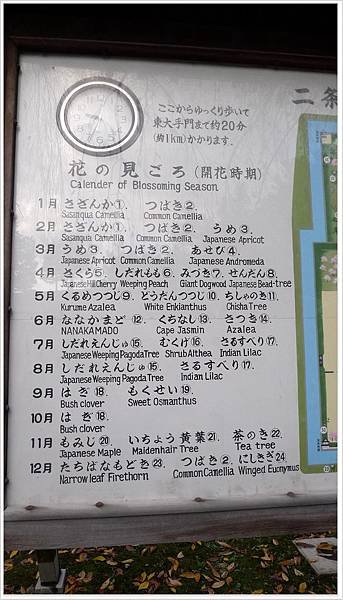 ここからゆっくり歩いて
東大手門まで約20分
(約1km)かかります.
二条
花の見ごろ(開花時期)
Calender of Blossoming Season
1月 さざんか①. つばき②.
Sasanqua Camellia Common Camellia
2月 さざんか①. つばき②. うめ③.
Sasanqua Camellia Common Camellia Japanese Apricot
3月 うめ③. つばき②. あせび④.
Japanese Apricot Common Camellia Japanese Andromeda
4月 さくら⑤. しだれもも⑥. みつき⑦. せんだん⑧.
Japanese Hill Cherry Weeping Peach Giant Dogwood Japanese Bead-tree
5月 くるめつつじ⑨. どうだんつつじ⑩. ちしゃのき⑪.
Kurume Azalea White Enkianthus Chisha Tree
6月 ななかまど⑫. くちなし⑬. さつき⑭.
NANAKAMADO Cape Jasmin Azalea
7月 しだれえんじゅ⑮. むくげ⑯. さるすべり⑰.
Japanese Weeping Pagoda Tree Shrub Althea Indian Lilac
8月 しだれえんじゅ⑮. さるすべり⑰.
Japanese Weeping Pagoda Tree Indian Lilac
9月 はぎ⑱. もくせい⑲.
Bush clover Sweet Osmanthus
10月 はぎ⑱.
Bush clover
11月 もみじ⑳. いちょう黄葉㉑. 茶のき㉒.
Japanese Maple Maidenhair Tree Tea tree
12月 たちばなもどき㉓. つばき②. にしきぎ㉔.
Narrow leaf Firethorn Common Camellia Winged Euonymus